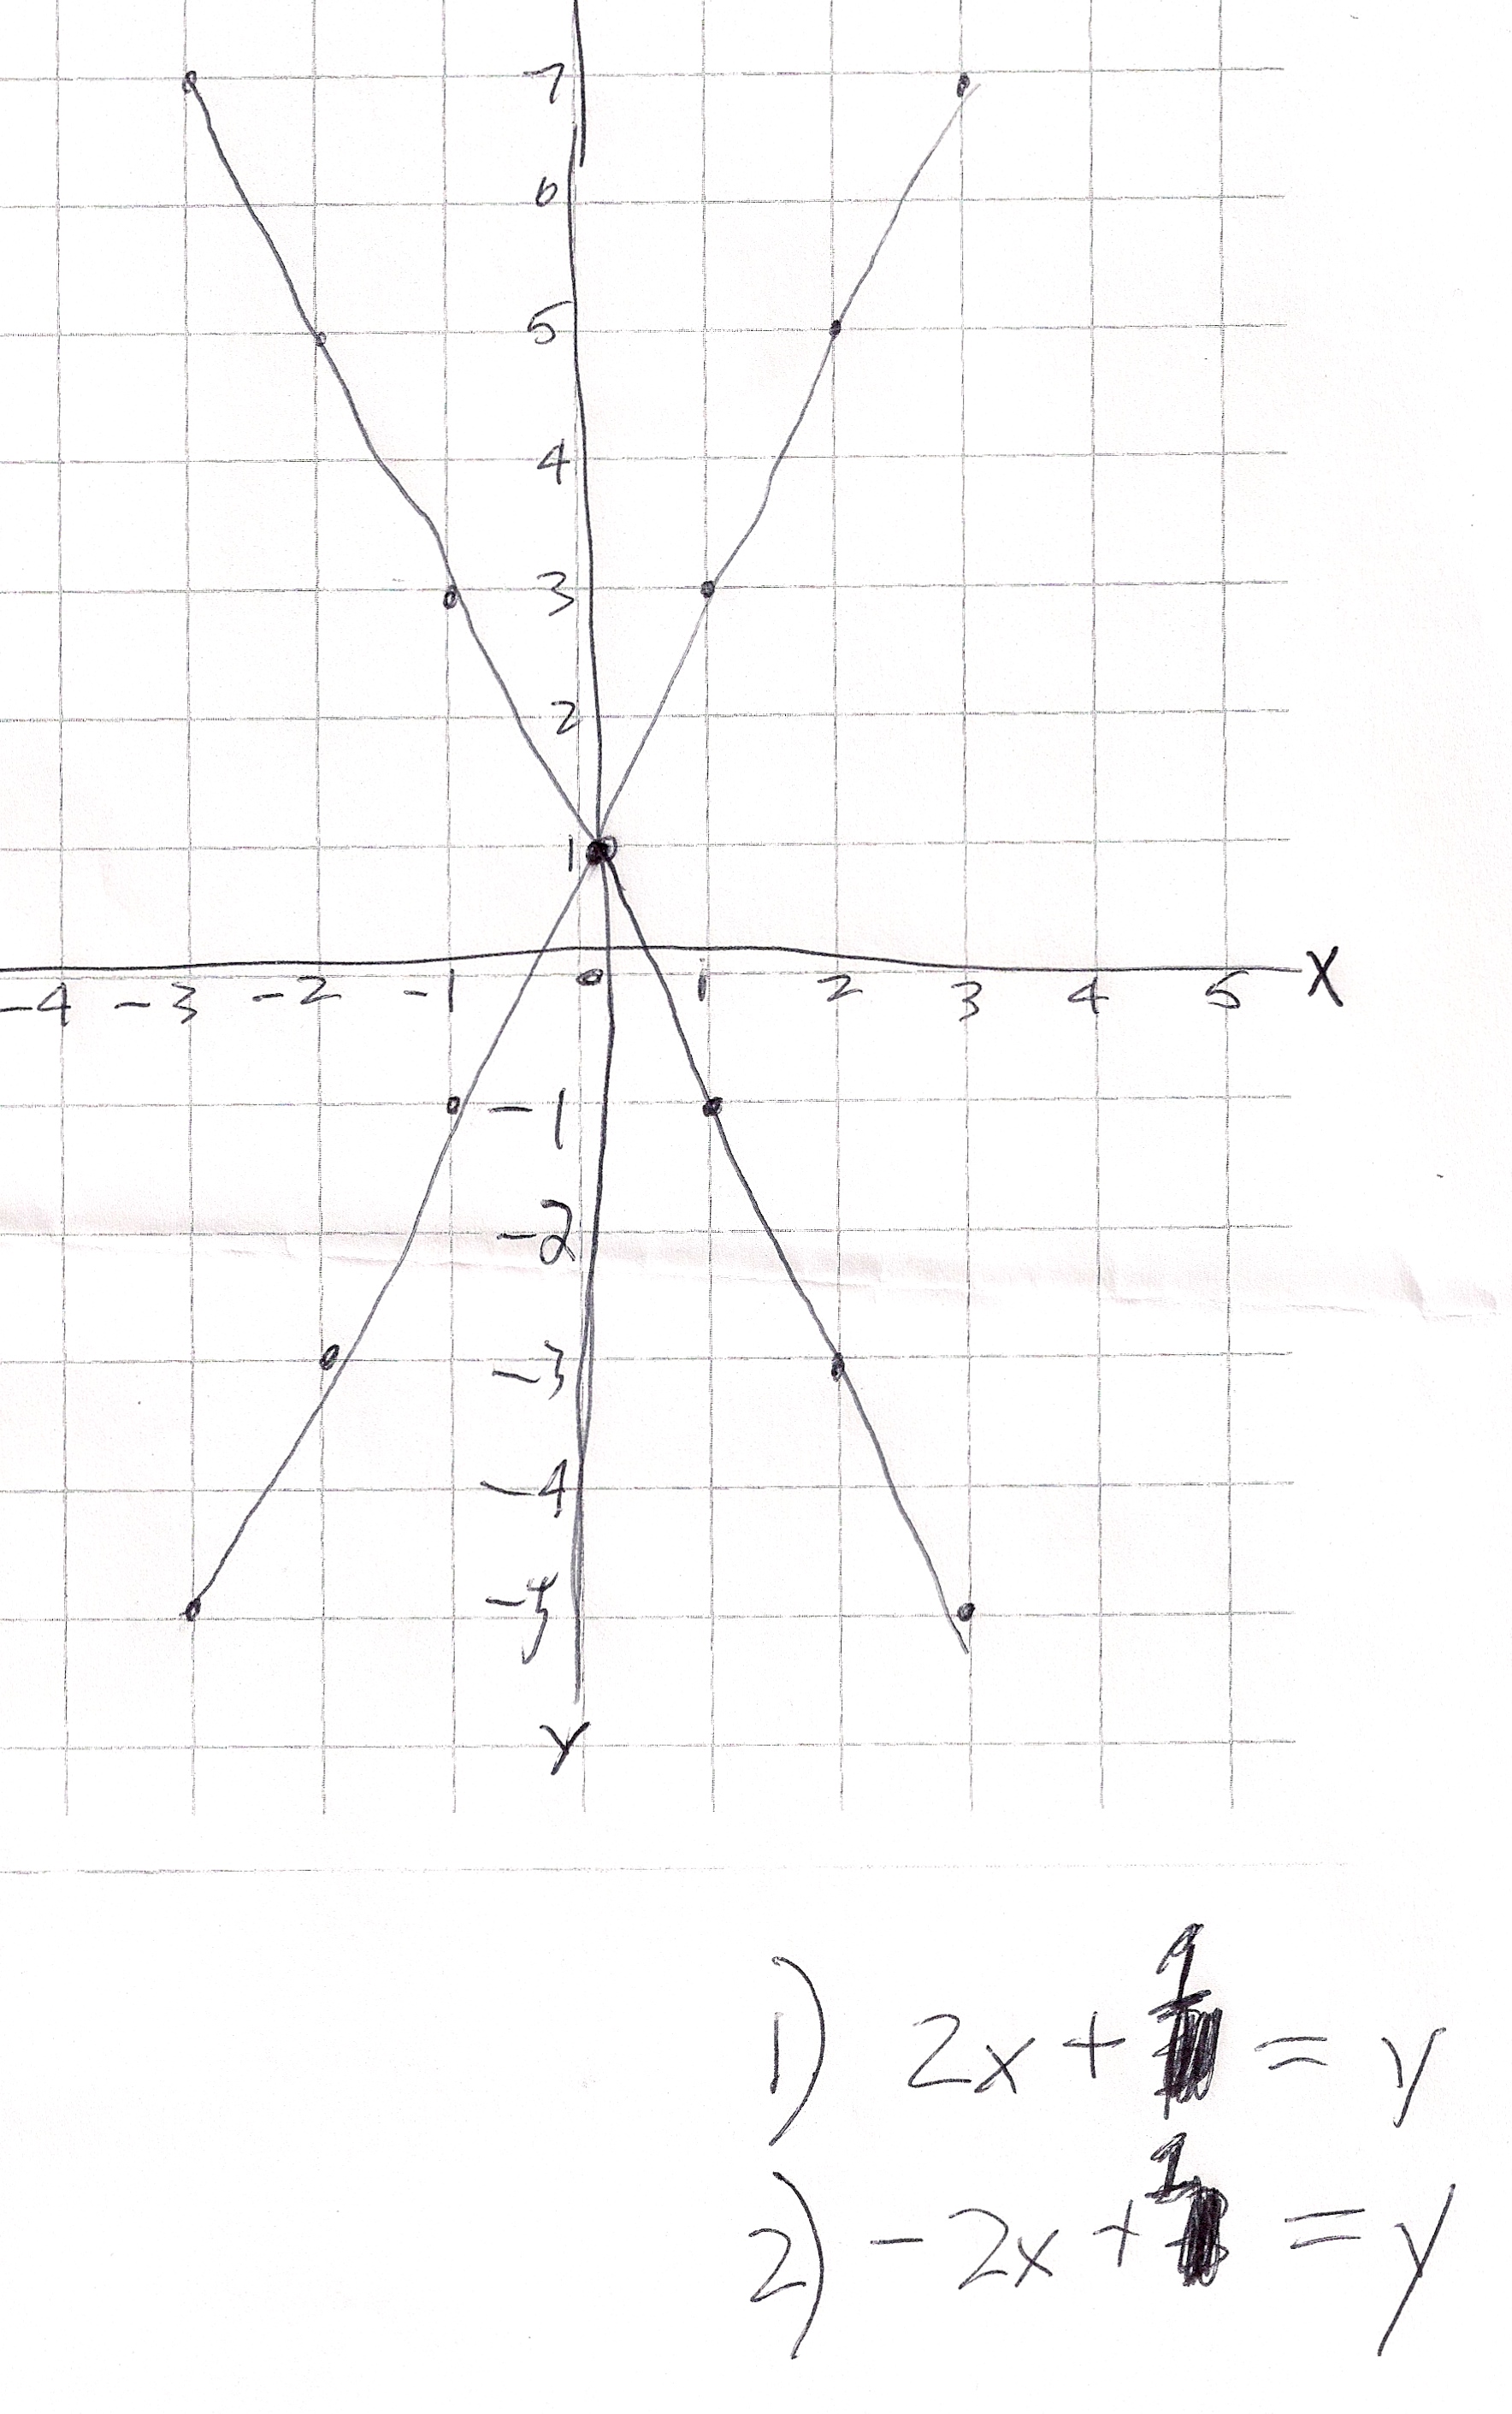 7
6
5
4
3
2
1
-4 -3 -2 -1 0 1 2 3 4 5 X
-1
-2
-3
-4
-5
Y
1) 2x + 1 = y
2) -2x + 1 = y